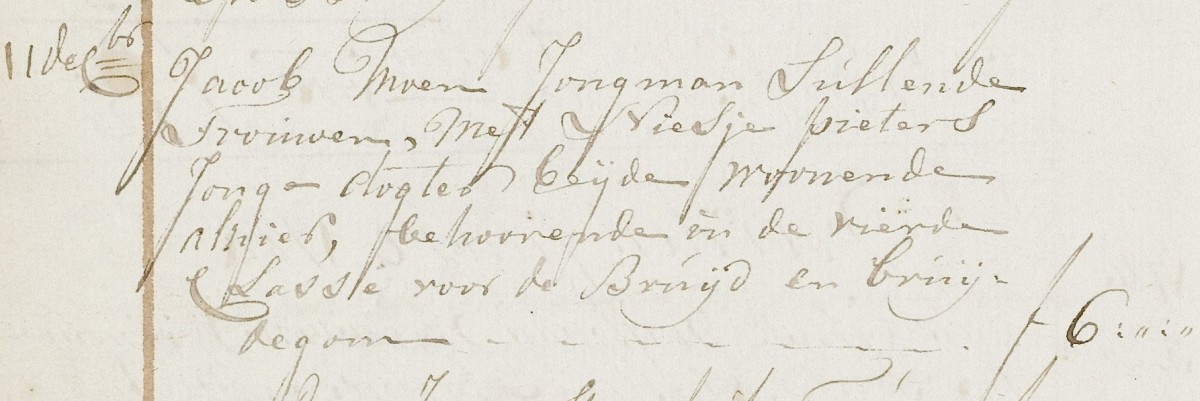 11 decbr
Jacob Moen Jongman Sullende
Trouwen, Met Niesje pieters
Jonge dogter beÿde woonende
alhier, behoorende in de vierde
Classe voor de Bruÿd en bruÿ-
degom - - - - - - - f 6:„:„